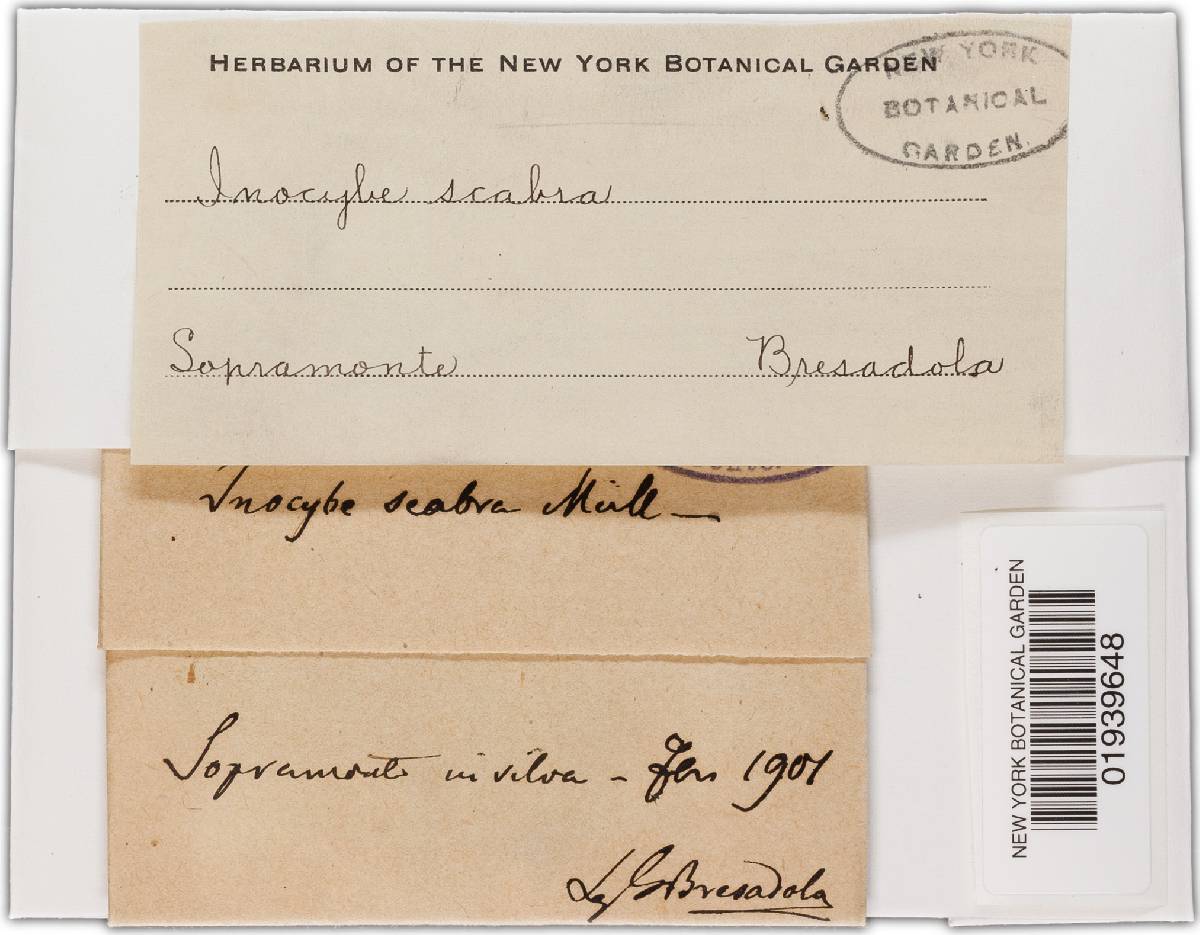 HERBARIUM OF THE NEW YORK BOTANICAL GARDEN
NEW YORK
BOTANICAL
GARDEN.
Inocybe scabra
Sopramonte Bresadola
Inocybe scabra Müll —
Sopramonte in silva - 1901
Lg G Bresadola
NEW YORK BOTANICAL GARDEN
01939648